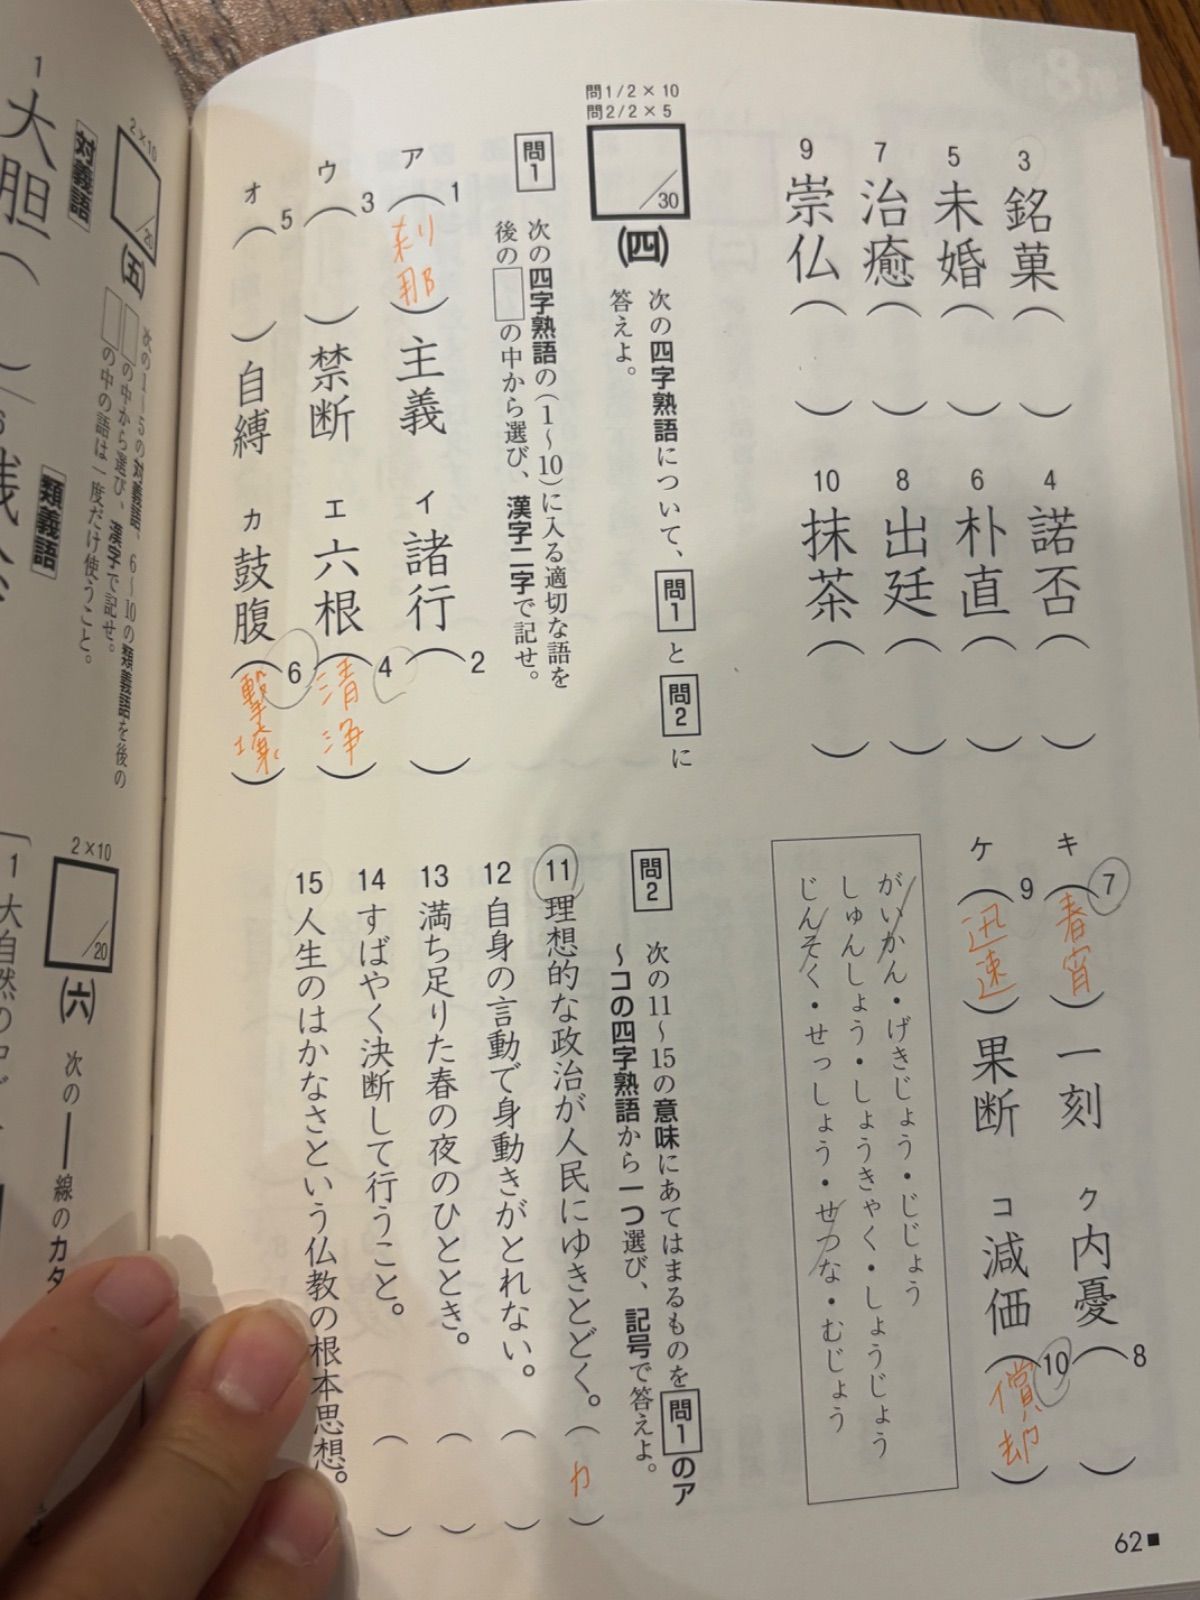 3 銘菓（　）
4 諾否（　）
5 未婚（　）
6 朴直（　）
7 治癒（　）
8 出廷（　）
9 崇仏（　）
10 抹茶（　）
問1/2×10
問2/2×5
/30
(四) 次の四字熟語について、問1と問2に
答えよ。
問1 次の四字熟語の（1～10）に入る適切な語を
後の□の中から選び、漢字二字で記せ。
ア（1 刹那）主義
イ 諸行（2　）
ウ（3　）禁断
エ 六根（4 清浄）
オ（5　）自縛
カ 鼓腹（6 撃壌）
キ（7 春宵）一刻
ク 内憂（8　）
ケ（9 迅速）果断
コ 減価（10 償却）
がいかん・げきじょう・じじょう
しゅんしょう・しょうきゃく・しょうじょう
じんそく・せっしょう・せつな・むじょう
問2 次の11～15の意味にあてはまるものを問1のア
～コの四字熟語から一つ選び、記号で答えよ。
11 理想的な政治が人民にゆきとどく。（カ）
12 自身の言動で身動きがとれない。（　）
13 満ち足りた春の夜のひととき。（　）
14 すばやく決断して行うこと。（　）
15 人生のはかなさという仏教の根本思想。
62■
2×10
/20
(五) 次の1～5の対義語、6～10の類義語を後の
□の中から選び、漢字で記せ。
□の中の語は一度だけ使うこと。
対義語
1 大胆（
類義語
6
2×10
/20
(六) 次の――線のカタ
1 大自然の中